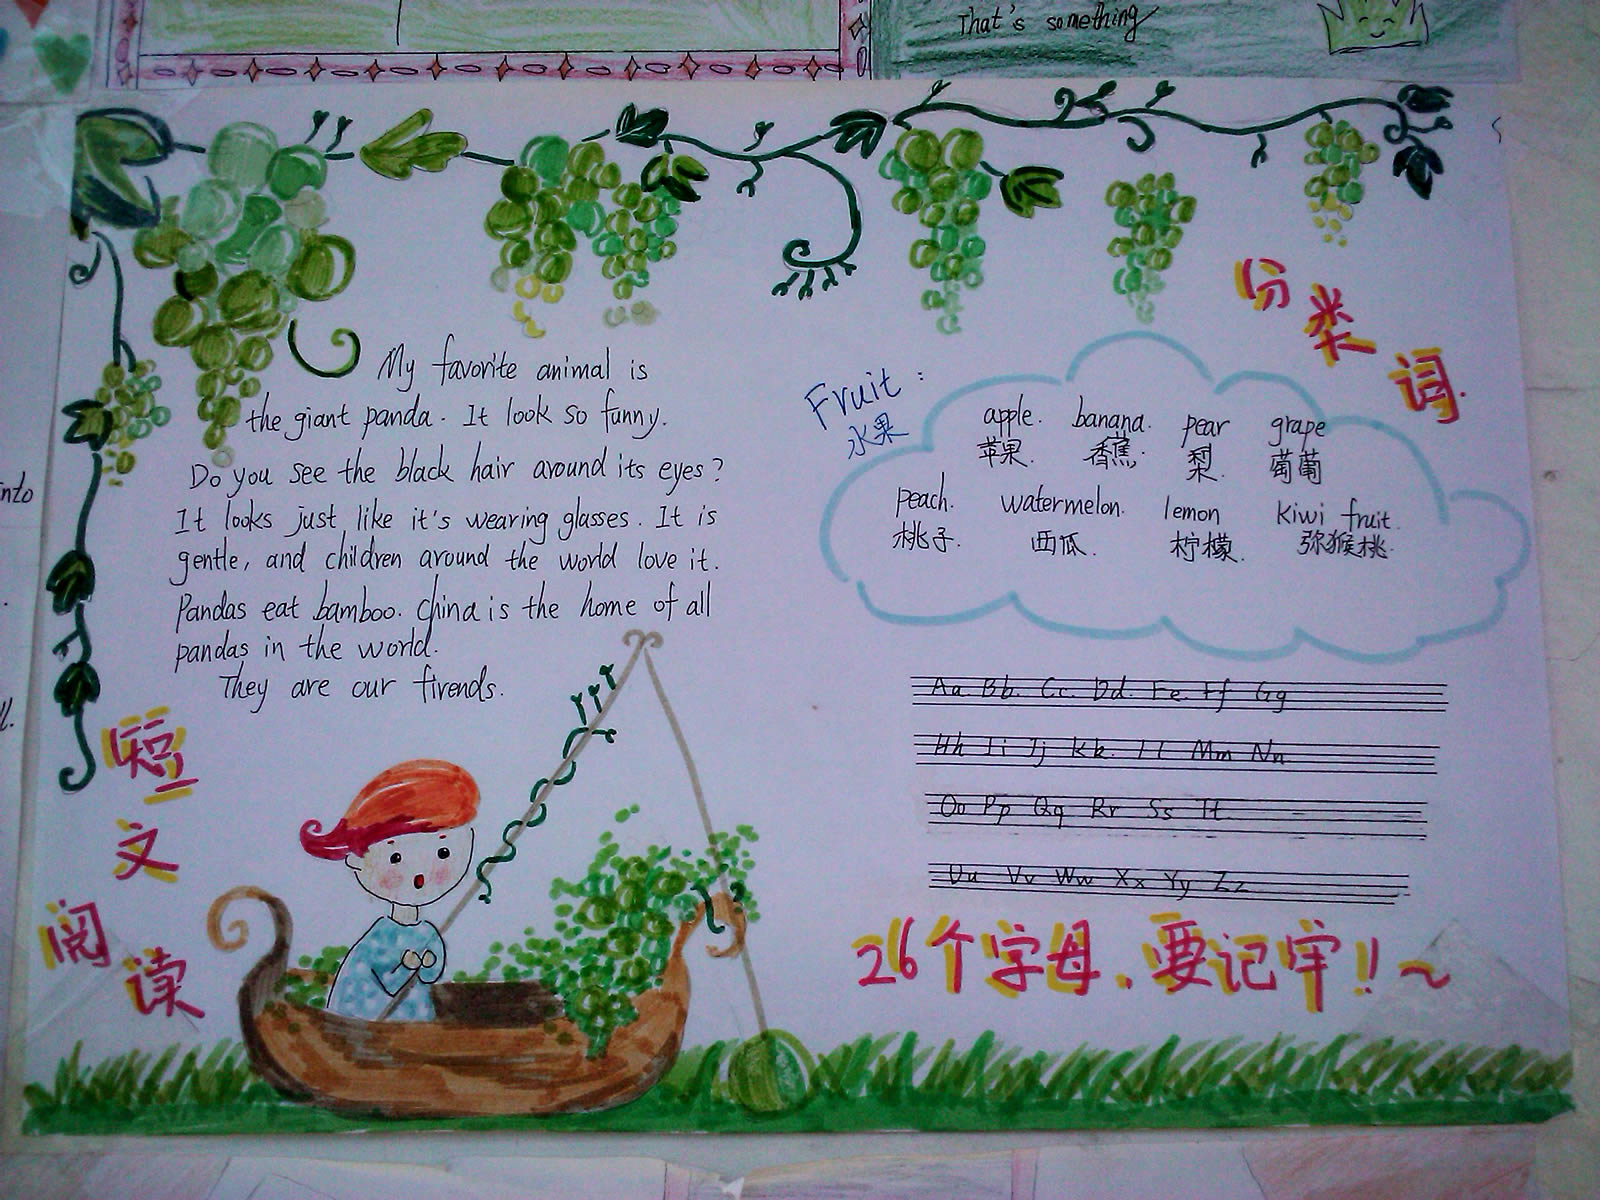 That's something
into
My favorite animal is
the giant panda. It look so funny.
Do you see the black hair around its eyes?
It looks just like it's wearing glasses. It is
gentle, and children around the world love it.
Pandas eat bamboo. China is the home of all
pandas in the world.
They are our firends.
短文阅读
分类词.
Fruit:
水果
apple. banana. pear grape
苹果. 香蕉. 梨. 葡萄
peach. watermelon. lemon kiwi fruit.
桃子. 西瓜. 柠檬. 弥猴桃.
Aa Bb Cc Dd Ee Ff Gg
Hh Ii Jj Kk Ll Mm Nn
Oo Pp Qq Rr Ss Tt
Uu Vv Ww Xx Yy Zz
26个字母.要记牢!~